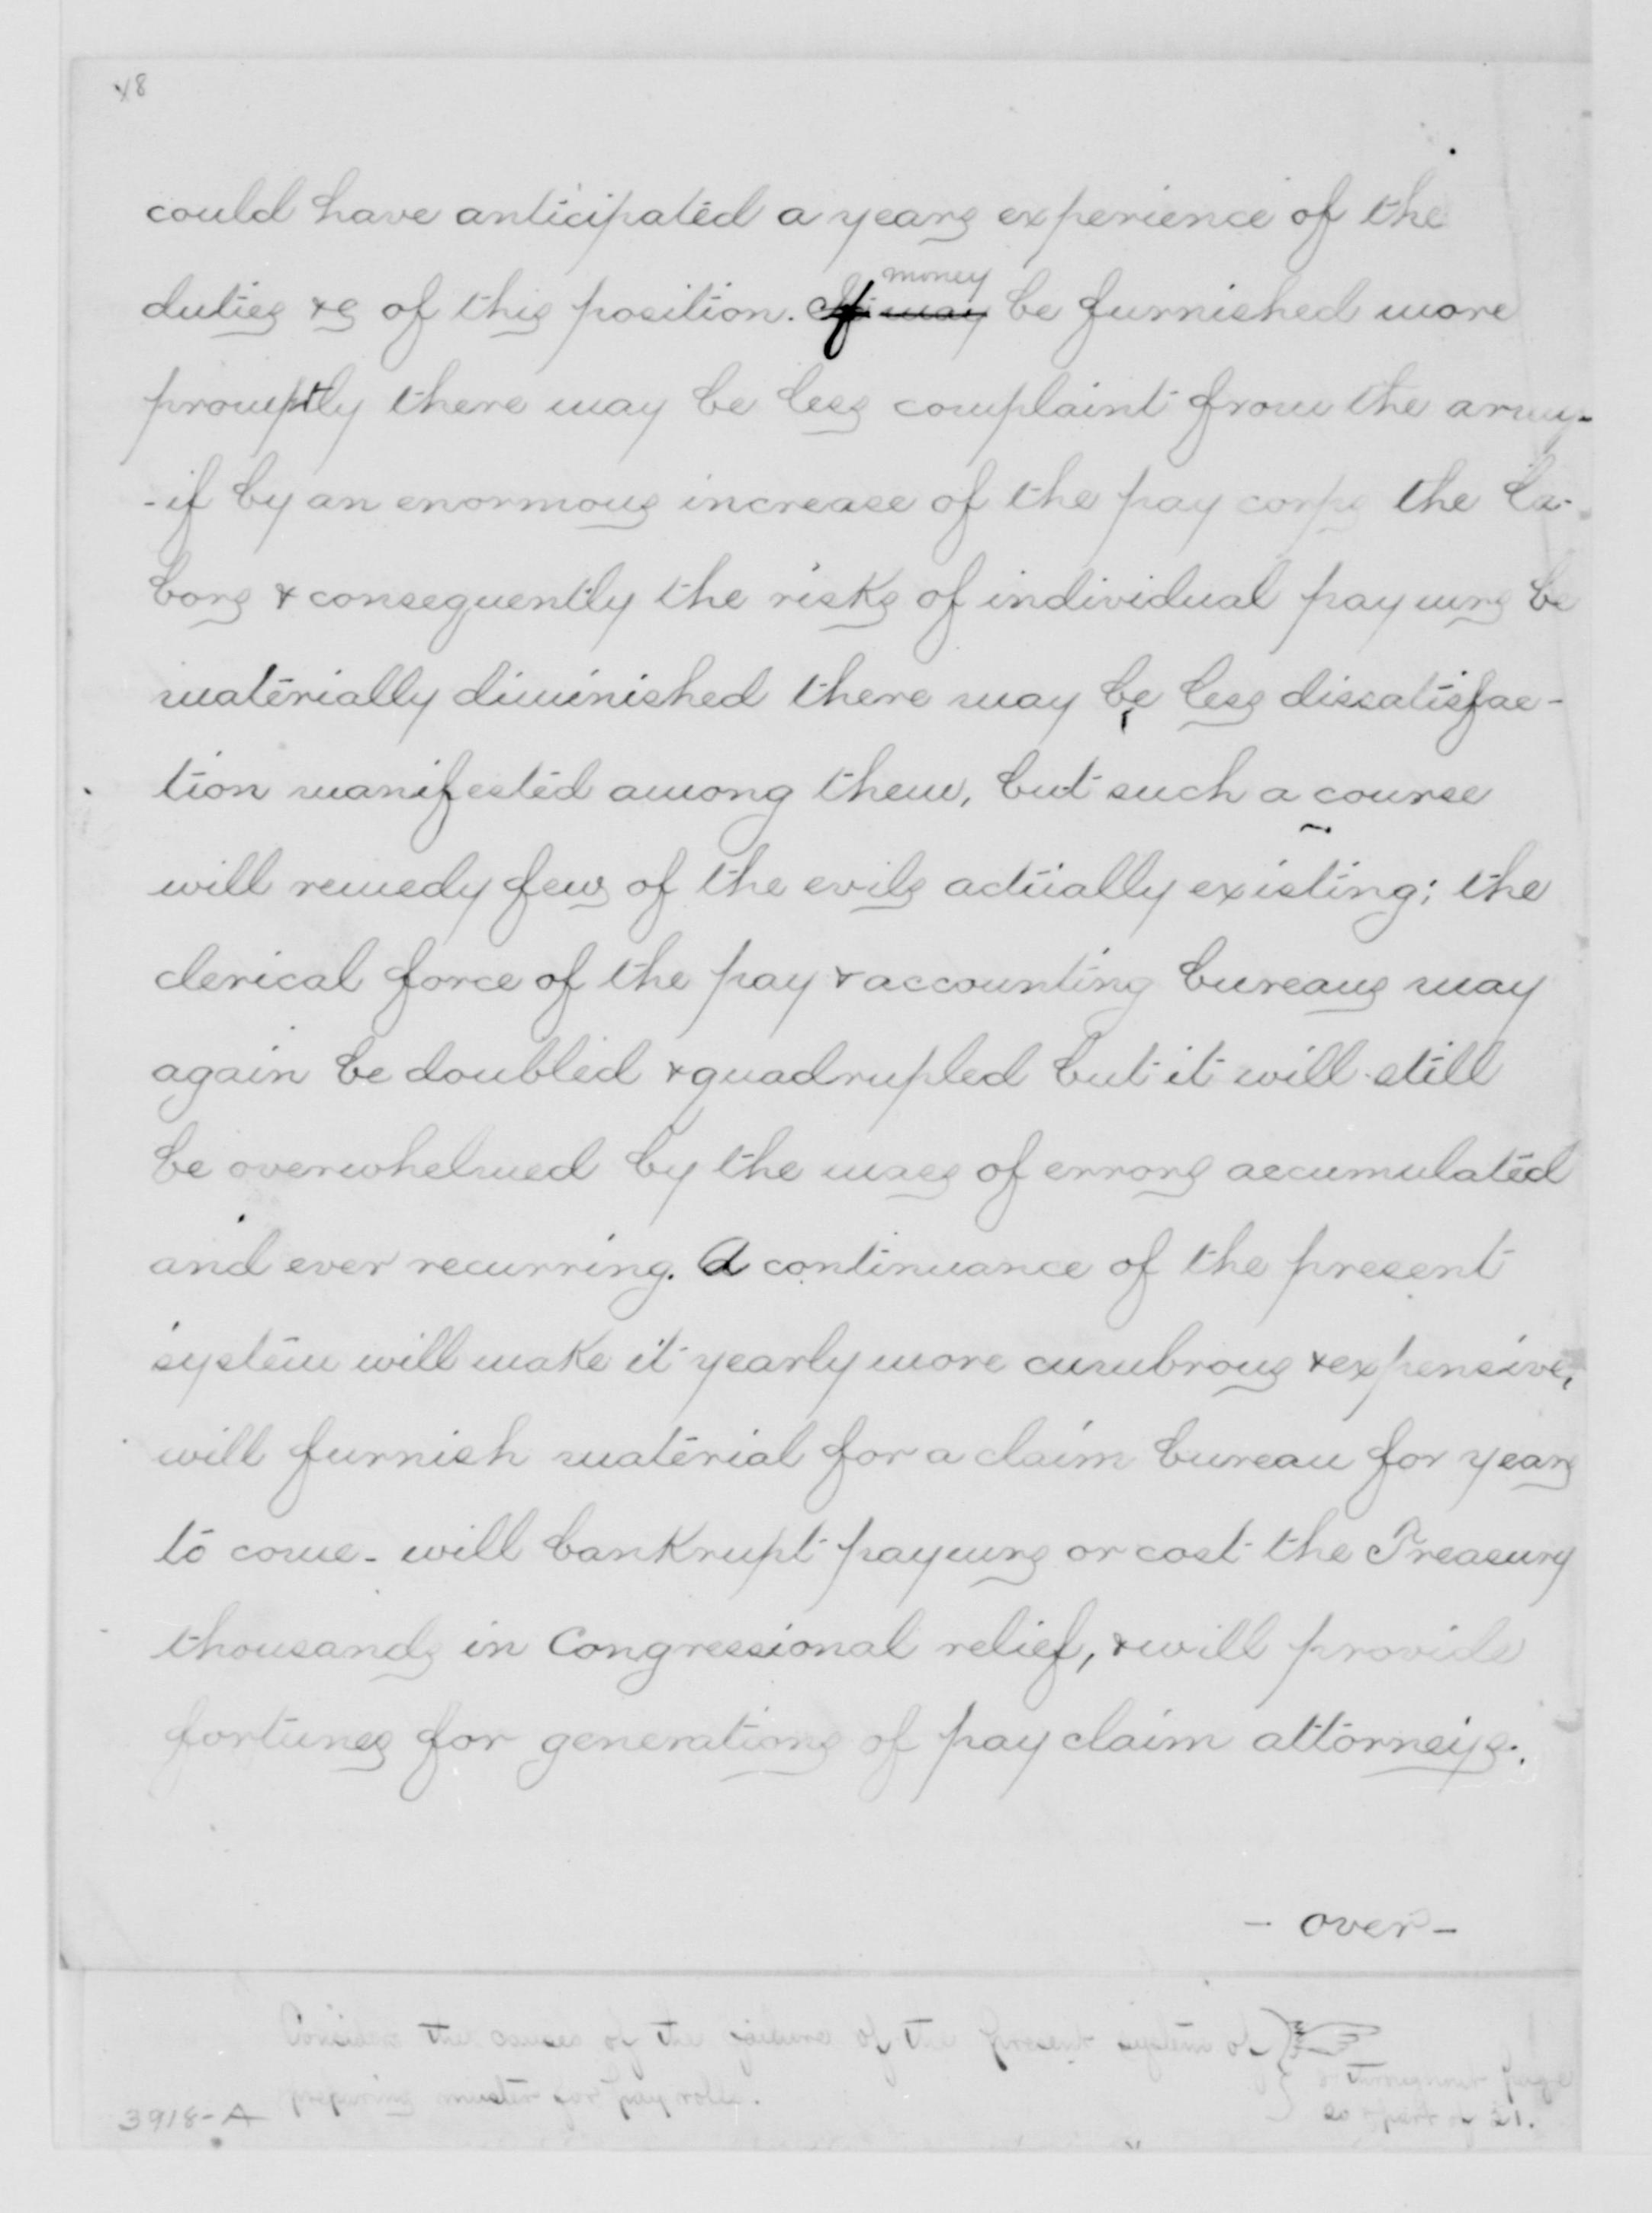 48
could have anticipated a years experience of the
duties &c of this position. If money be furnished more
promptly there may be less complaint from the army-
- if by an enormous increase of the pay corps the la-
bors & consequently the risks of individual paymrs be
materially diminished there may be less dissatisfac-
tion manifested among them, but such a course
will remedy few of the evils actually existing; the
clerical force of the pay & accounting bureaus may
again be doubled & quadrupled but it will still
be overwhelmed by the mass of errors accumulated
and ever recurring. A continuance of the present
system will make it yearly more cumbrous & expensive,
will furnish material for a claim bureau for years
to come - will bankrupt paymrs or cost the Treasury
thousands in Congressional relief, & will provide
fortunes for generations of pay claim attorneys.
- over -
Consider the causes of the failure of the present system of
preparing muster for pay rolls.
& throughout page
20 & part of 21.
3918-A